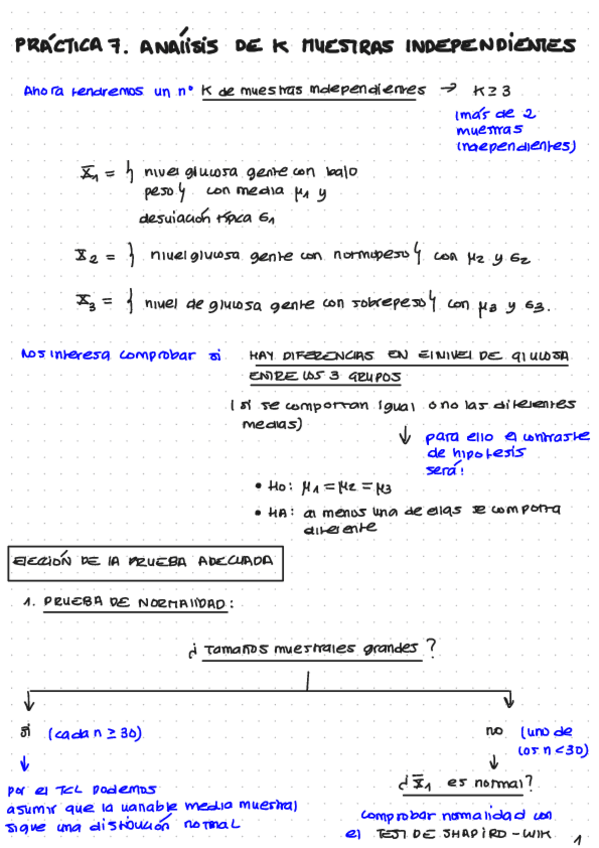 PRÁCTICA 7. ANÁlISIS DE K MUESTRAS INDEPENDIENTES
Ahora tendremos un nº K de muestras independientes → K ≥ 3
(más de 2
muestras
independientes)
X̄₁ = { nivel glucosa gente con bajo
peso} con media μ₁ y
desviación típica σ₁
X̄₂ = } nivel glucosa gente con normopeso} con μ₂ y σ₂
X̄₃ = { nivel de glucosa gente con sobrepeso} con μ₃ y σ₃.
Nos interesa comprobar si HAY DIFERENCIAS EN El NIVEL DE GlUCOSA
ENTRE LOS 3 GRUPOS
(si se comportan igual o no las diferentes
medias)
↓ para ello el contraste
de hipotesis
será:
• H₀: μ₁ = μ₂ = μ₃
• HA: al menos una de ellas se comporta
diferente
ElECCIÓN DE lA PRUEBA ADECUADA
1. PRUEBA DE NORMAlIDAD:
¿Tamaños muestrales grandes?
si (cada n ≥ 30)
no (uno de
los n < 30)
por el TCL podemos
asumir que la variable media muestral
sigue una distribución normal
¿X̄₁ es normal?
comprobar normalidad con
el TEST DE SHAPIRO-WIlK
1